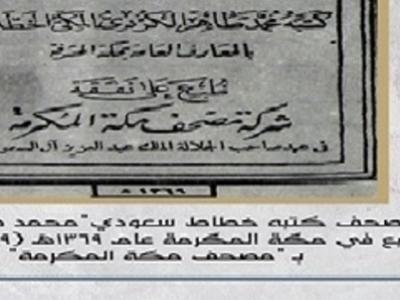 كتبه محمد طاهر الكردي المكي الخطاط
بالمعارف العامة بمكة المحمية
طبع على نفقة
شركة مصحف مكة المكرمة
في عهد صاحب الجلالة الملك عبد العزيز آل السعود
١٣٦٩ هـ
مصحف كتبه خطاط سعودي "محمد
في مكة المكرمة عام ١٣٦٩هـ
بـ "مصحف مكة المكرمة"